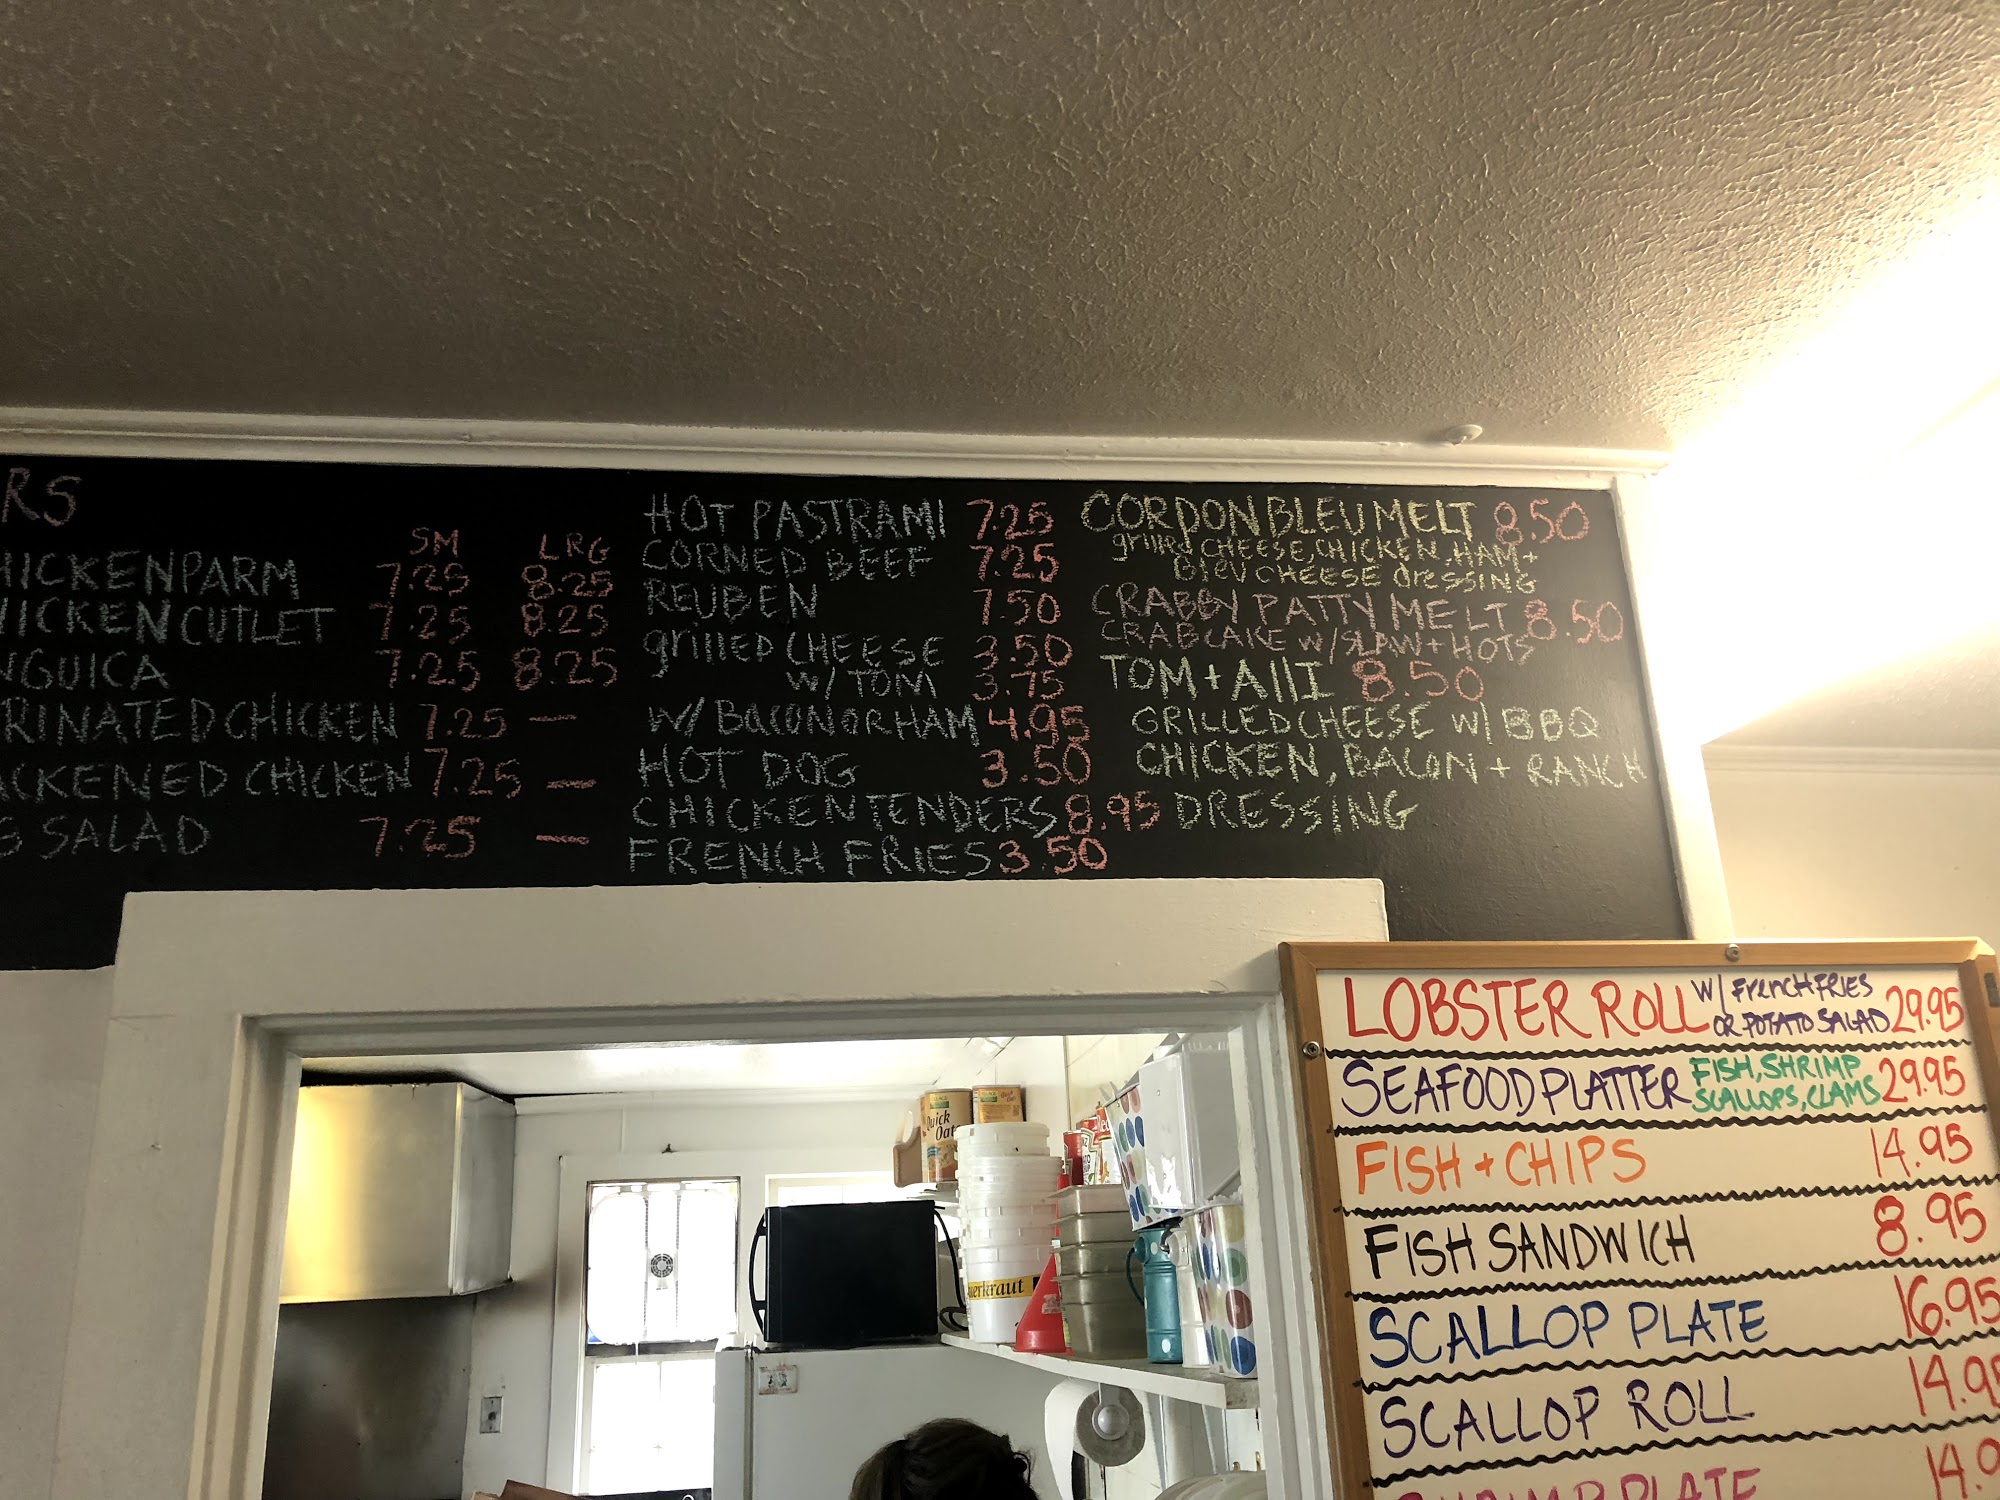 RS
SM LRG
HICKEN PARM 7.25 8.25
HICKEN CUTLET 7.25 8.25
NGUICA 7.25 8.25
RINATED CHICKEN 7.25 —
ACKENED CHICKEN 7.25 —
G SALAD 7.25 —
HOT PASTRAMI 7.25
CORNED BEEF 7.25
REUBEN 7.50
grilled CHEESE 3.50
W/ TOM 3.75
W/ BACON OR HAM 4.95
HOT DOG 3.50
CHICKEN TENDERS 8.95
FRENCH FRIES 3.50
CORDON BLEU MELT 8.50
grilled CHEESE, CHICKEN, HAM +
BLEU CHEESE dressing
CRABBY PATTY MELT 8.50
CRABCAKE W/ SLAW + HOTS
TOM + AllI 8.50
GRILLED CHEESE W/ BBQ
CHICKEN, BACON + RANCH
DRESSING
LOBSTER ROLL W/ FrencH FRIES OR POTATO SALAD 29.95
SEAFOOD PLATTER FISH, SHRIMP SCALLOPS, CLAMS 29.95
FISH + CHIPS 14.95
FISH SANDWICH 8.95
SCALLOP PLATE 16.95
SCALLOP ROLL 14.9
SHRIMP PLATE 14.9
Quick
Oat
uerkraut